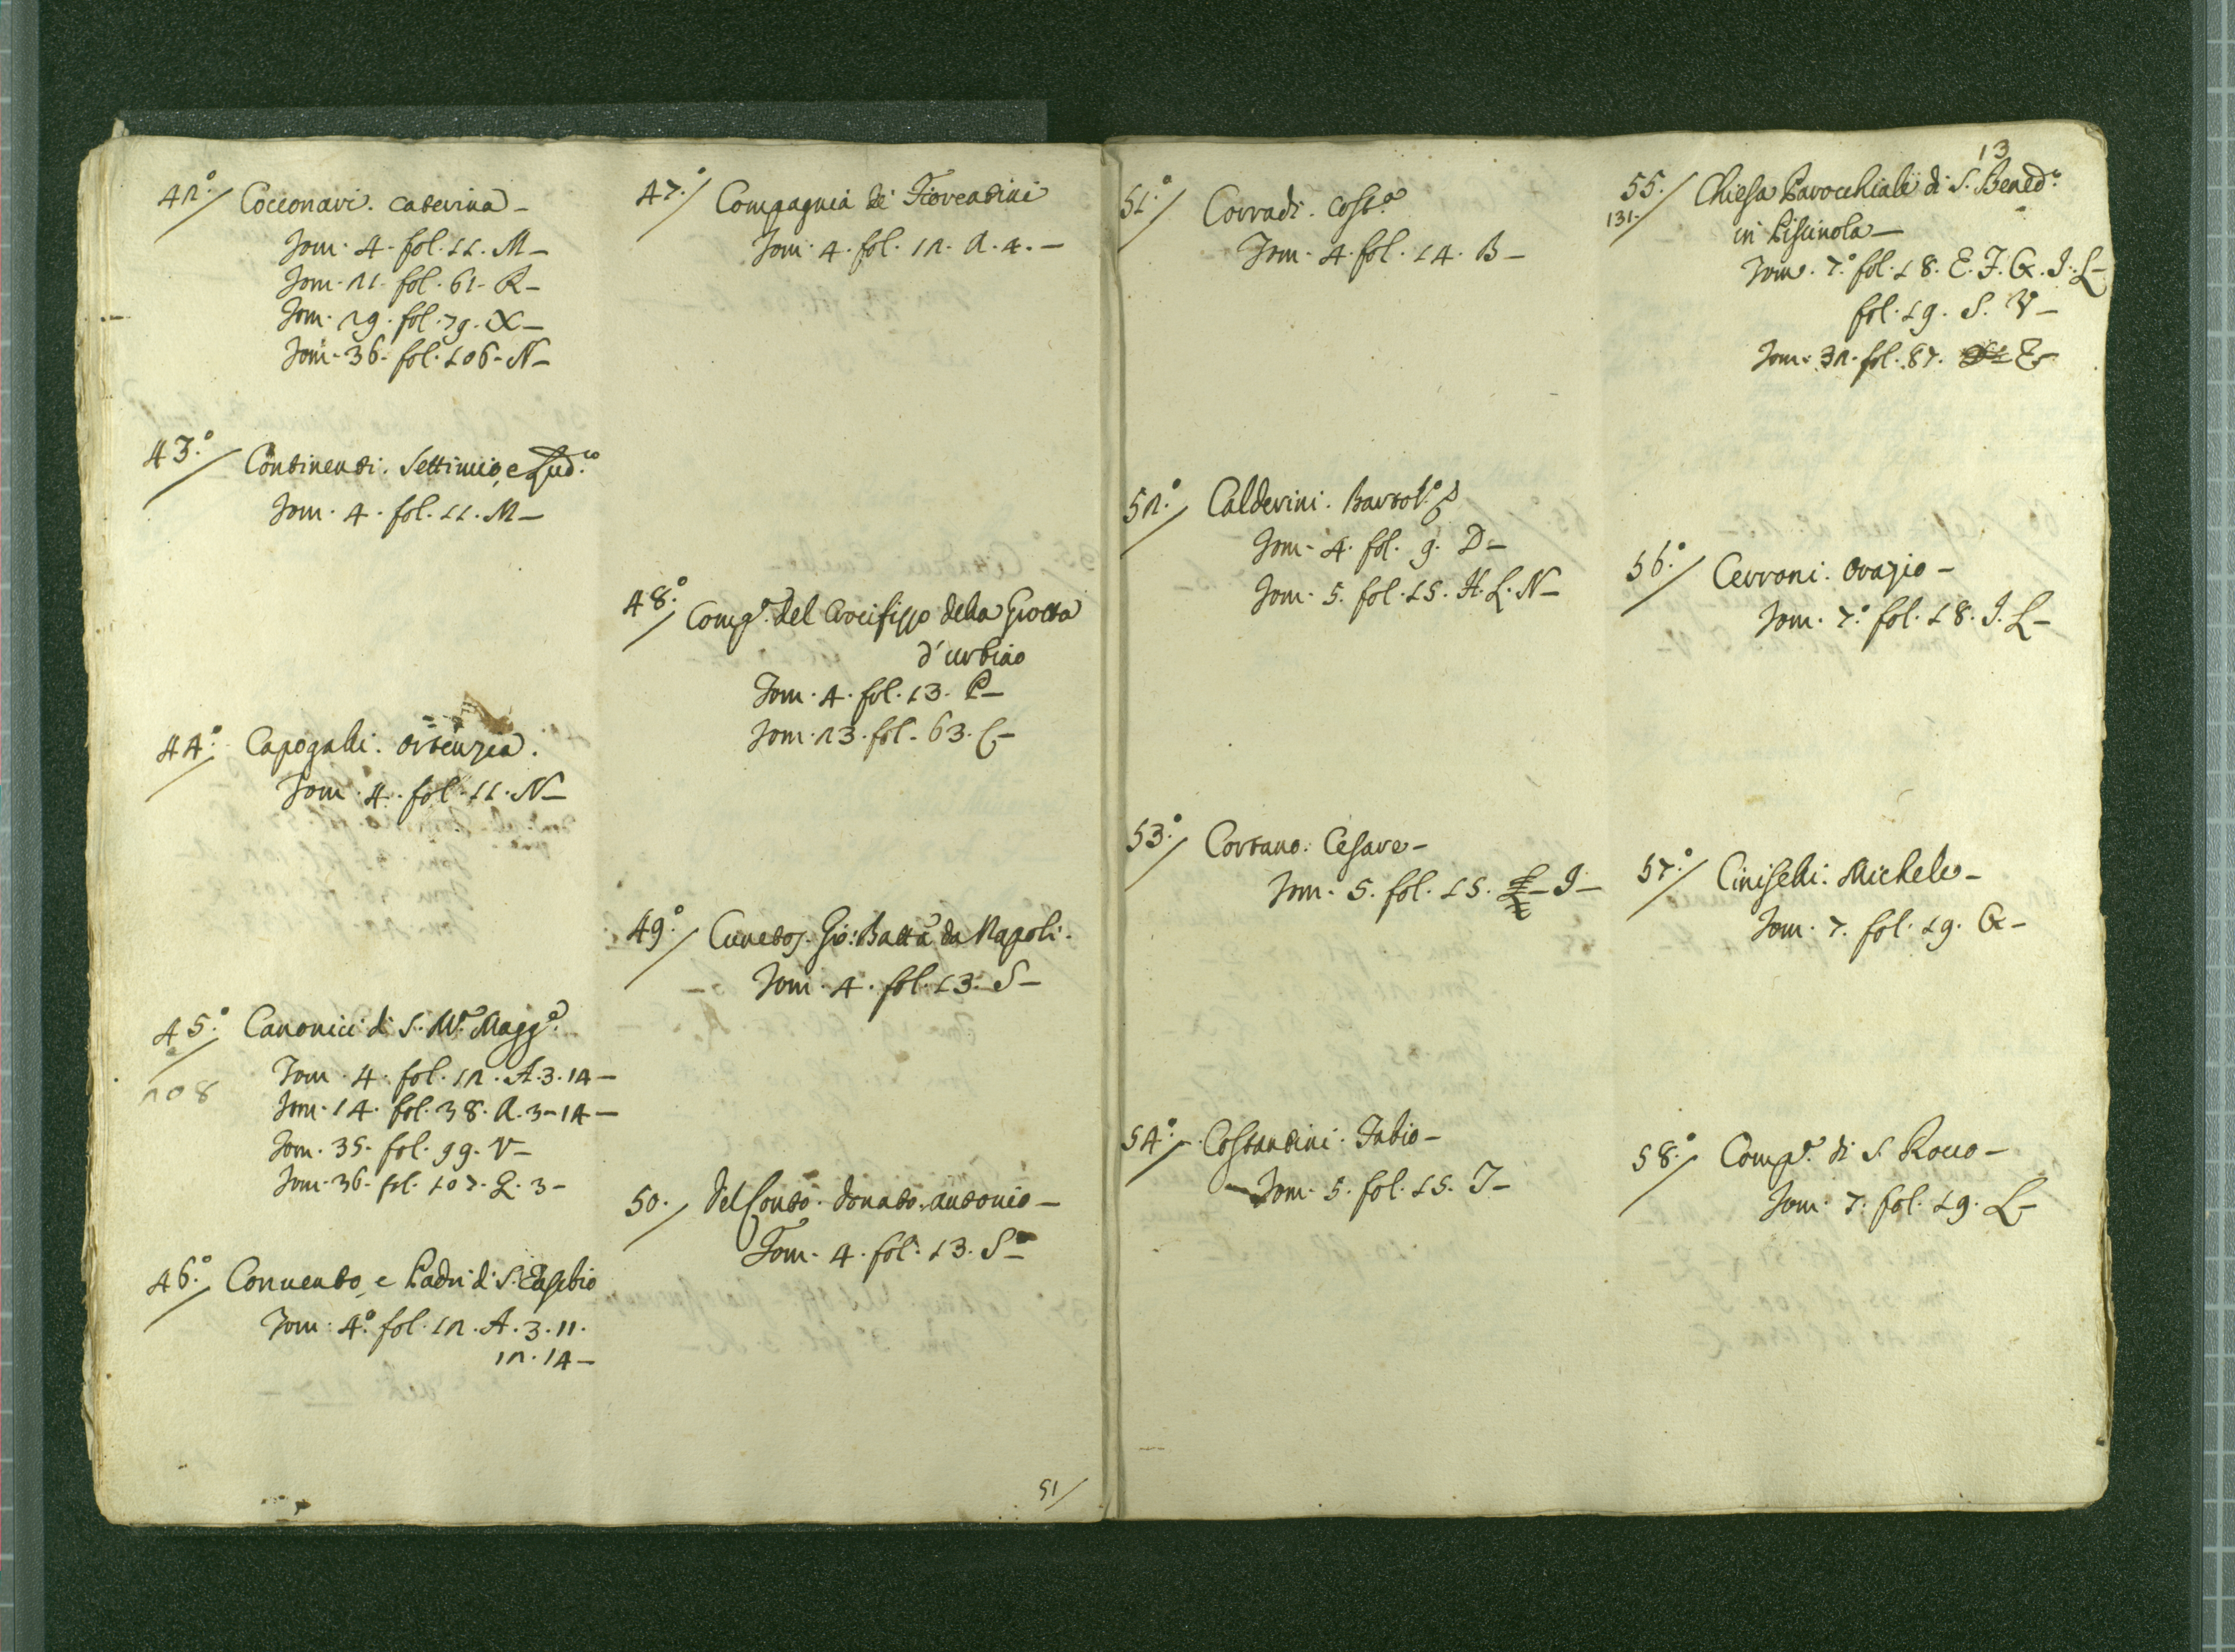 42.º/ Cocconari. Caterina –
Tom. 4. fol. 11. M –
Tom. 21. fol. 61. R –
Tom. 29. fol. 79. X –
Tom. 36. fol. 106. N –
43.º/ Continenti. Settimio, e Lud.co
Tom. 4. fol. 11. M –
44.º/ Capogalli. Ortenzia.
Tom. 4. fol. 11. N –
45.º/ Canonici di S. M.a Magg.e
208
Tom. 4. fol. 12. A. 3. 14 –
Tom. 14. fol. 38. A. 3 – 14 –
Tom. 35. fol. 99. V –
Tom. 36. fol. 107. Q. 3 –
46.º/ Convento, e Padri di S. Eusebio
Tom. 4.º fol. 12. A. 3. 11.
12. 14 –
47.º/ Compagnia de Fiorentini
Tom. 4. fol. 12. A. 4. –
48.º/ Comp.a del Crocifisso della Grotta
d'urbino
Tom. 4. fol. 13. P –
Tom. 23. fol. 63. C –
49.º/ Gio: Batta da Napoli.
Tom. 4. fol. 13. S –
50./ Del Conto. Donato. Antonio –
Tom. 4. fol. 13. S –
51/
13
51.º/ Corradi. Cost.a
Tom. 4. fol. 14. B –
52.º/ Calderini. Bartol.o
Tom. 4. fol. 9. D –
Tom. 5. fol. 15. H. L. N –
53.º/ Cortano. Cesare –
Tom. 5. fol. 15. I –
54.º/ Costantini. Fabio –
Tom. 5. fol. 15. I –
55./ Chiesa Parocchiale di S. Bened.o
131./ in Piscinola –
Tom. 7.º fol. 18. E. F. G. I. L –
fol. 19. S. V –
Tom. 32. fol. 87. E –
56.º/ Cerroni. Orazio –
Tom. 7.º fol. 18. I. L –
57.º/ Ciniselli. Michele –
Tom. 7. fol. 19. G –
58.º/ Comp.a di S. Rocco –
Tom. 7. fol. 19. L –